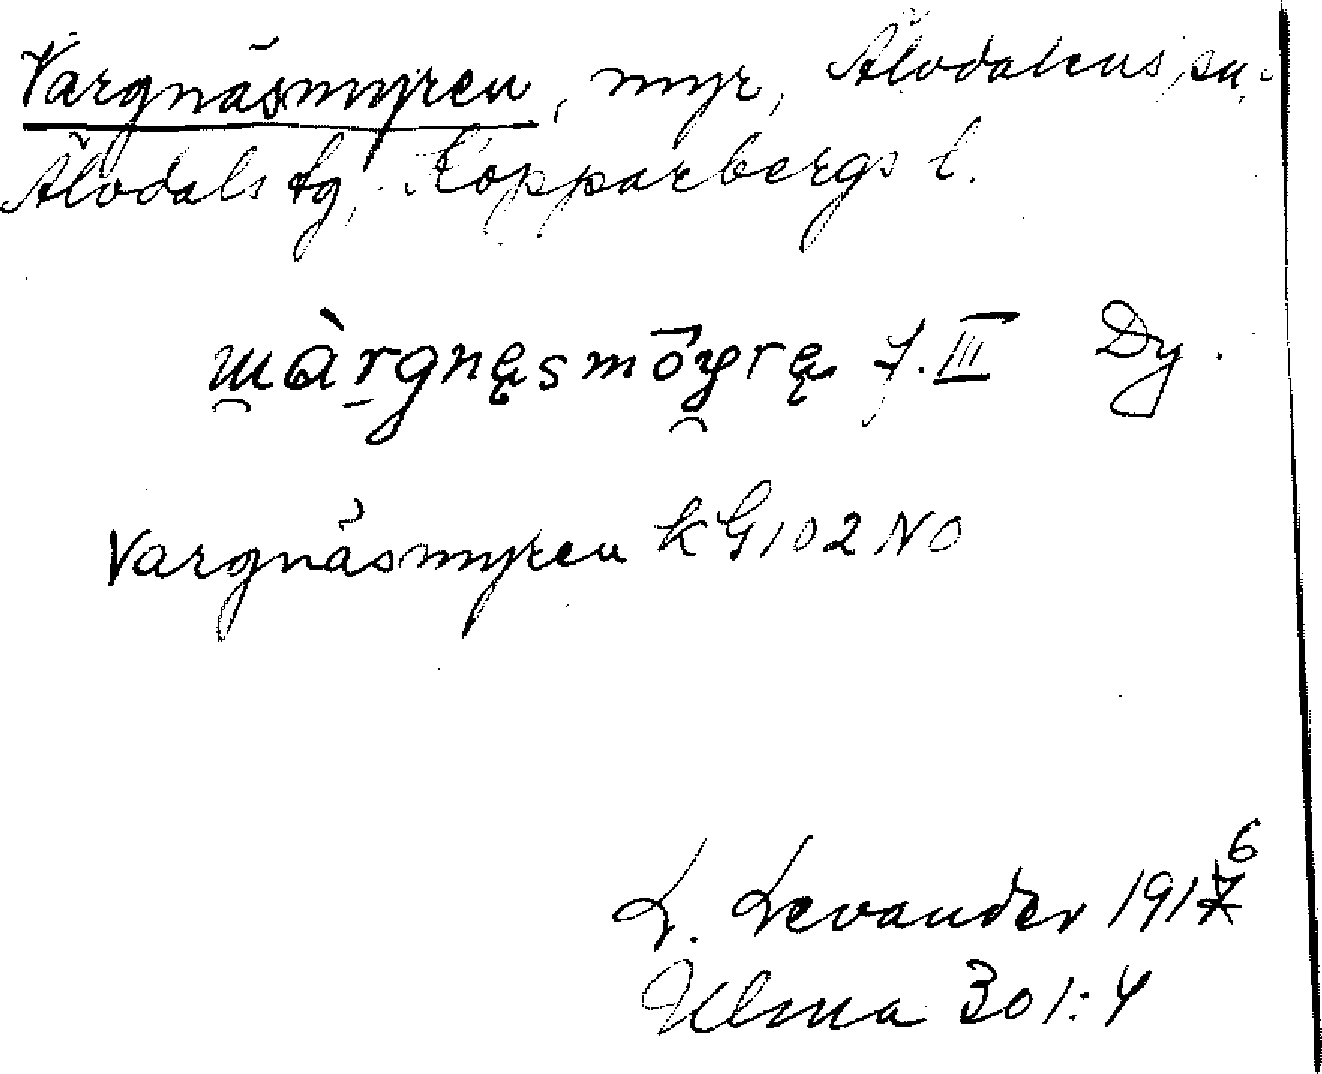 Vargnäsmyren, myr, Älvdalens sn.
Älvdals tg, Kopparbergs l.
w̯àrgnęsmō̯yrę f. III Dy.
Vargnäsmyren k G 102 NO
L. Levander 1916
Ulma 301:4